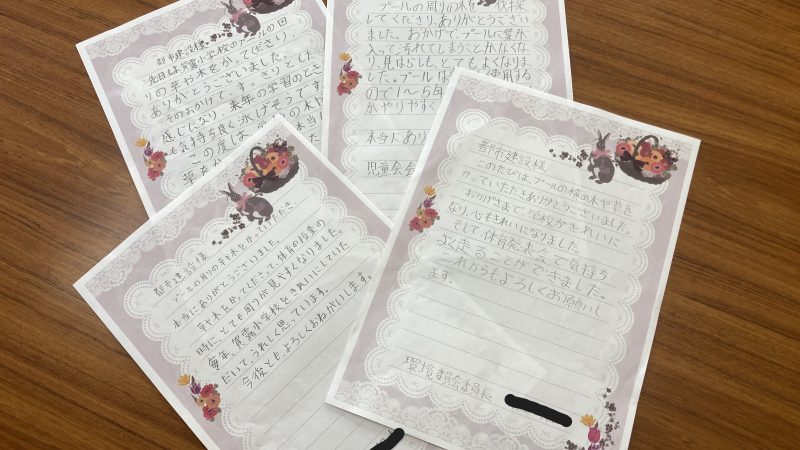 都市建設様
先日は賀露小学校のプールの回
りの草や木をかってくださり
ありがとうございました。
そのおかげで、すっきりとした
感じになり、来年の学習のとき
も気持ち良く泳げそうです
この度は
プールの周りの木を
してくださり、ありがとうござい
ました。おかげで、プールに葉が
入って、汚れてしまうことがなくな
り、見はらしも、とてもよくなりま
した。プールは 使用する
ので1〜5年
がやりやすく
本当にあり
児童会
都市建設様
プールの周りの草や木をかっていただき、
本当にありがとうございました。
草や木をかってくださって、体育の授業の
時に、とても周りが見やすくなりました。
毎年、賀露小学校をきれいにしていた
だいて、うれしく思っています。
今後とも、よろしくおねがいします。
都市建設様
このたびは、プールの横の木や草を
かっていただきありがとうございました。
おかげさまで、学校がきれいに
なり、心もきれいになりました。
そして体育発表会で気持ち
よく走ることができました。
これからもよろしくお願いし
ます。
環境委員会委員長